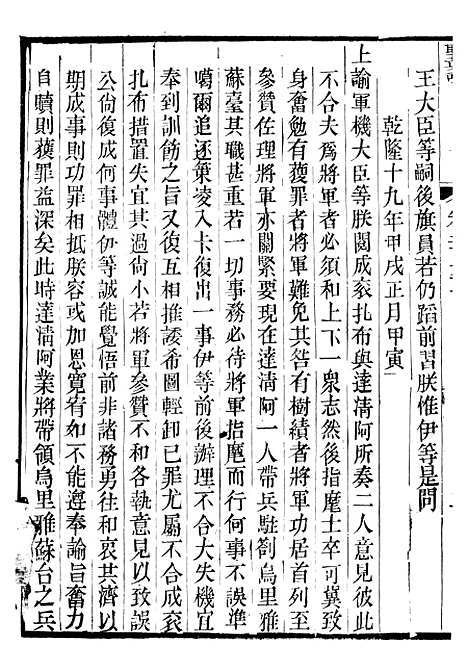 王大臣等嗣後旗員若仍蹈前習朕惟伊等是問
乾隆十九年甲戌正月甲寅
上諭軍機大臣等朕閱成袞扎布與達清阿所奏二人意見彼此
不合夫爲將軍者必須和上下一衆志然後指麾士卒可冀致
身奮勉有獲罪者將軍亦難免其咎有樹績者將軍功居首列至
參贊佐理將軍亦關緊要現在達清阿一人帶兵駐劄烏里雅
蘇臺其職甚重若一切事務必待將軍指麾而行何事不誤準
噶爾追逐蒐凌入卡復出一事伊等前後辦理不合大失機宜
奉到訓飭之旨又復互相推諉希圖輕卸已罪尤屬不合成袞
扎布措置失宜其過尙小若將軍參贊不和各執意見以致誤
公尙復成何事體伊等誠能覺悟前非諸務勇往和衷其濟
期成事則功罪相抵朕容可加恩寬宥如不能遵奉諭旨奮力
自贖則獲罪益深矣此時達清阿業將帶領烏里雅蘇台之兵